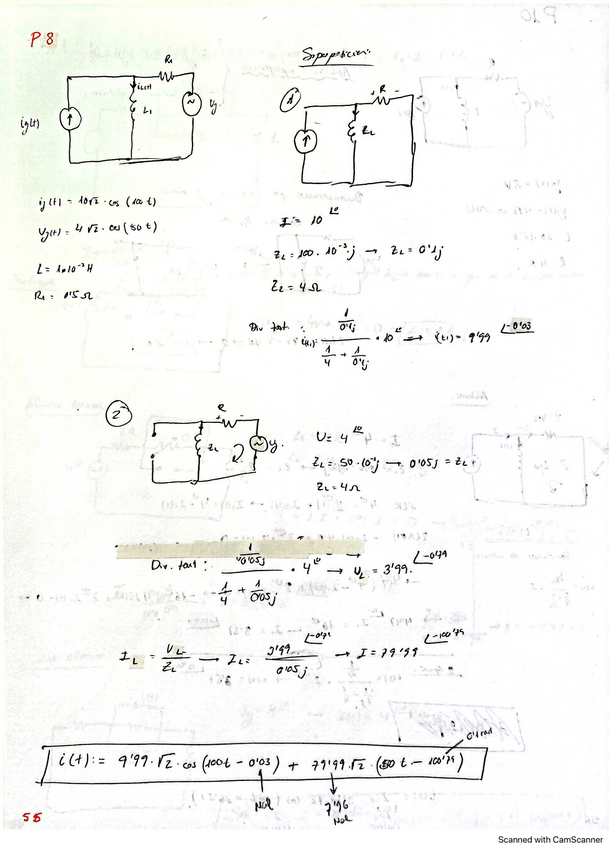 P8
Superposicion:
R1
iL(t)
L1
ig(t)
Vg
1
R
ZL
ig(t) = 10√2 · cos (100 t)
Vg(t) = 4√2 · cos (50 t)
L = 1·10⁻³ H
R1 = 0'5 Ω
I = 10 ∠0
ZL = 100 · 10⁻³ · j → ZL = 0'1j
Z2 = 4 Ω
i(t): (1/0'1j) / (1/4 + 1/0'1j) · 10 ∠0 → i(t) = 9'99 ∠-0'03
2
R
ZL
Vg.
U = 4 ∠0
ZL = 50 · 10⁻³j → 0'05j = ZL
Z2 = 4Ω
Div. tent : (1/0'05j) / (1/4 + 1/0'05j) · 4 ∠0 → UL = 3'99 ∠-0'79
IL = UL/ZL → IL = 3'99 ∠-0'79 / 0'05j → I = 79'99 ∠-100'79
i(t) := 9'99 · √2 · cos (100t - 0'03) + 79'99 · √2 · (50 t - 100'79)
7'96
55
Scanned with CamScanner